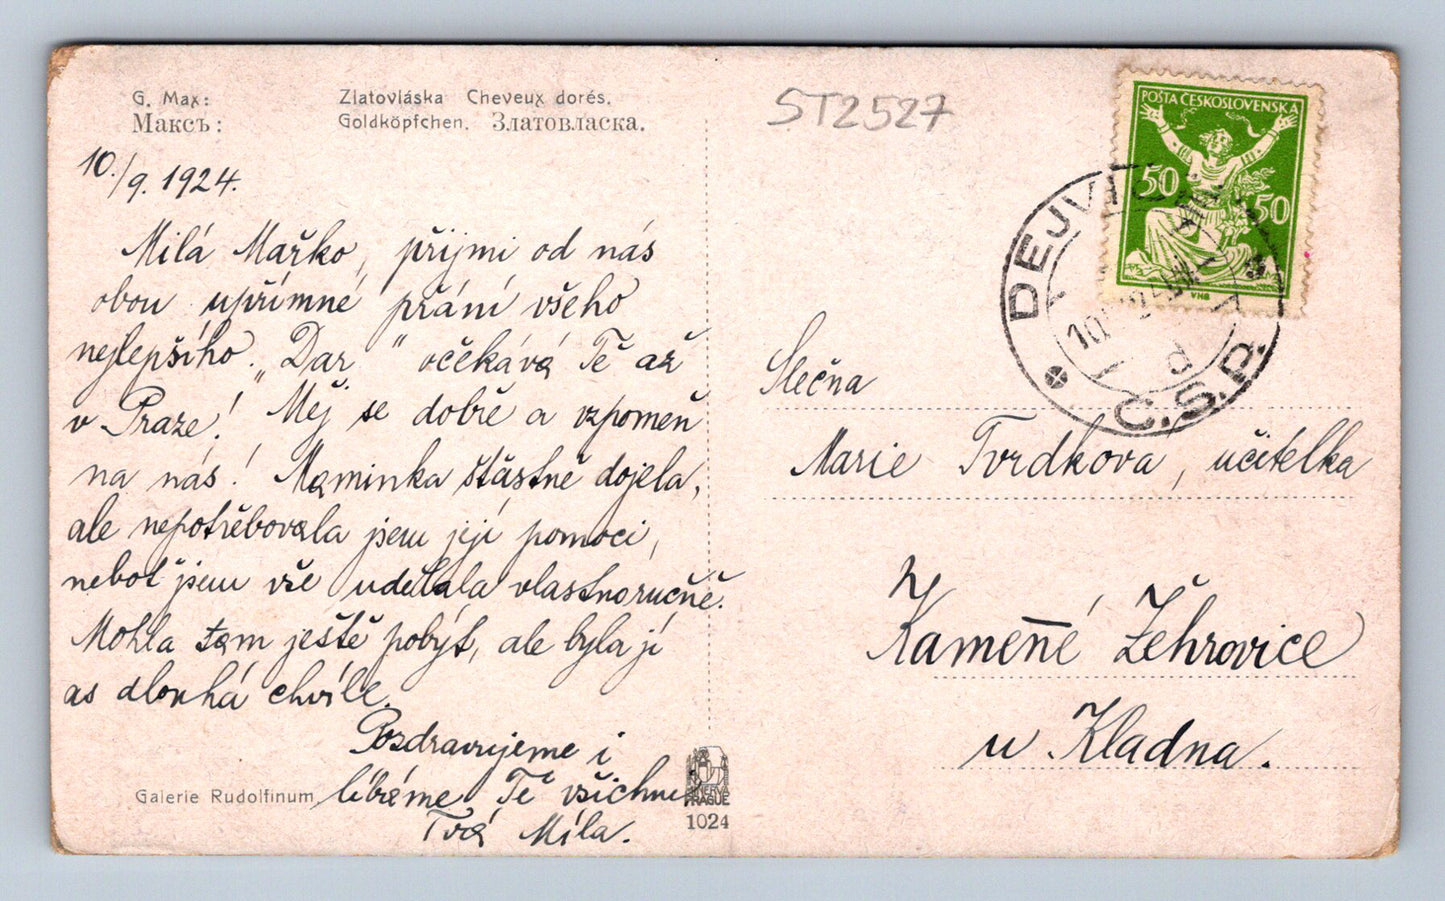 G. Max:
Максъ:
Zlatovláska Cheveux dorés.
Goldköpfchen. Златовласка.
10./9. 1924.
Milá Mařko, přijmi od nás
obou upřímné přání všeho
nejlepšího. „Dar“ očekává Tě až
v Praze! Měj se dobře a vzpomeň
na nás! Maminka šťastně dojela,
ale nepotřebovala jsem její pomoci,
neboť jsem vše udělala vlastnoručně.
Mohla tam ještě pobýt, ale byla jí
as dlouhá chvíle.
Pozdravujeme i
líbáme Tě všichni
Tvá Míla.
Galerie Rudolfinum.
MINERVA
PRAGUE
1024
ST2527
POŠTA ČESKOSLOVENSKA
50 50
VHB
DEJVICE
Č.S.P.
Slečna
Marie Tvrdková, učitelka
v
Kamenné Žehrovice
u Kladna.